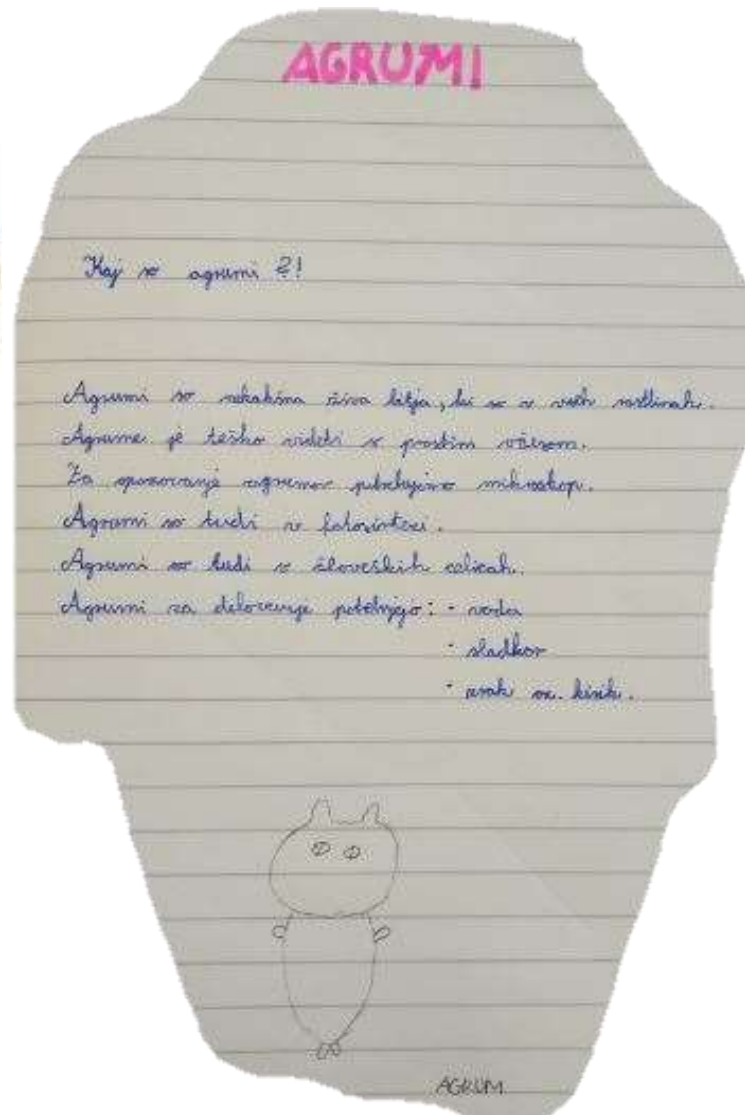 AGRUMI
Kaj so agrumi ?!
Agrumi so nekakšna živa bitja, ki so v vseh rastlinah.
Agrume je težko videti s prostim očesom.
Za opazovanje agrumov potrebujemo mikroskop.
Agrumi so tudi v fotosintezi.
Agrumi so tudi v človeških celicah.
Agrumi za delovanje potrebujejo: - voda
- sladkor
- zrak oz. kisik.
AGRUM